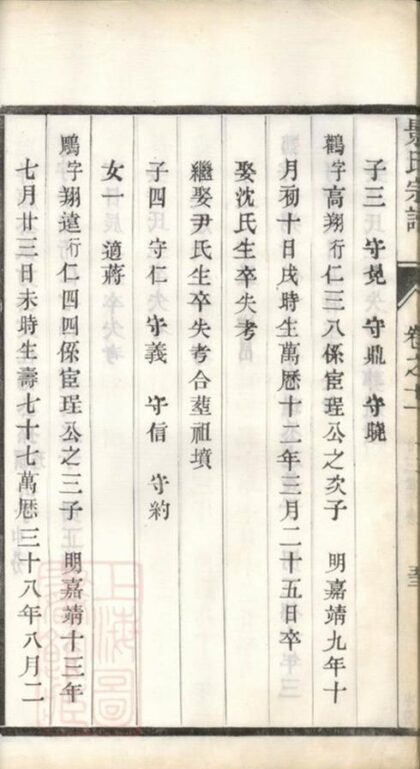 景氏宗譜 卷之十一
子三 守冕 守鼎 守驍
鸛字高翔行仁三八係宦珵公之次子 明嘉靖九年十
月初十日戌時生萬曆十二年三月二十五日卒
娶沈氏生卒失考
繼娶尹氏生卒失考合塟祖墳
子四 守仁 守義 守信 守約
女一 適蔣
鵰字翔遠行仁四四係宦珵公之三子 明嘉靖十三年
七月廿三日未時生壽七十七萬曆三十八年八月二
上海圖書館藏